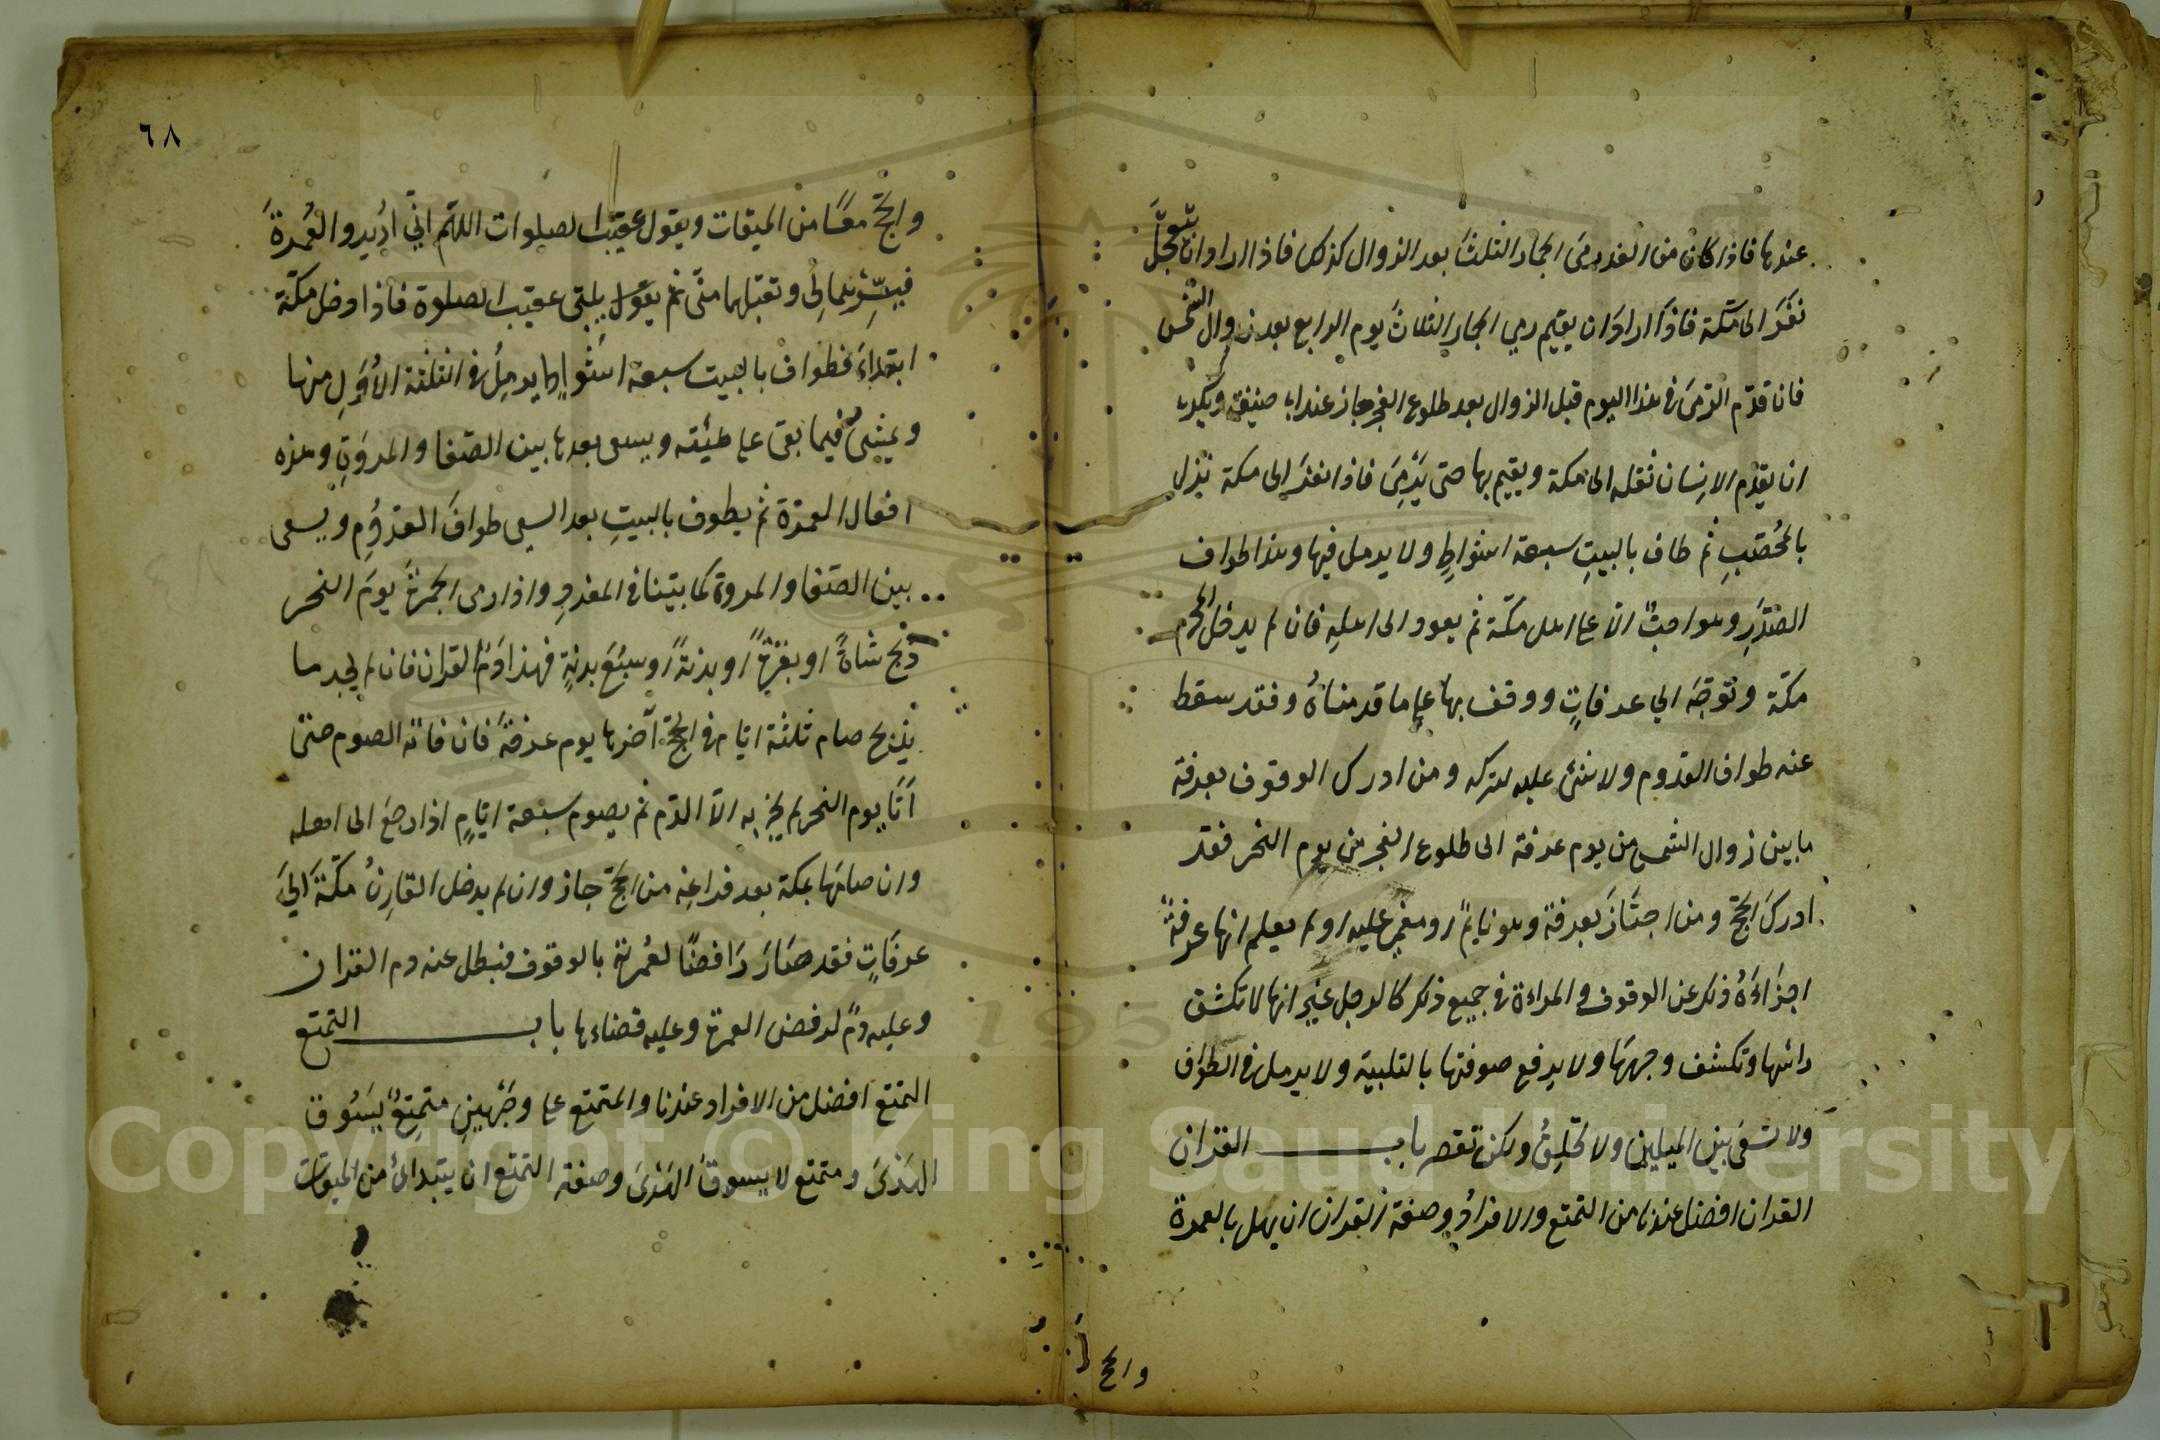 عندها فاذا كان من الغد رمى الجمار الثلث بعد الزوال كذلك فاذا اراد ان يتعجل
نفر الى مكة فاذا اراد ان يقيم رمي الجمار الثلاث يوم الرابع بعد زوال الشمس
فان قدم الرمى فى هذا اليوم قبل الزوال بعد طلوع الفجر جاز عند ابى حنيفة ويكره
ان يقدم الانسان ثقله الى مكة ويقيم بها حتى يرمى فاذا نفر الى مكة نزل
بالمحصب ثم طاف بالبيت سبعة اشواط ولا يرمل فيها وهذا طواف
الصدر وهو واجب الا على اهل مكة ثم يعود الى اهله فان لم يدخل المحرم
مكة وتوجه الي عرفات ووقف بها على ما قدمناه وفقد سقط
عنه طواف القدوم ولا شئ عليه لتركه ومن ادرك الوقوف بعرفة
ما بين زوال الشمس من يوم عرفة الى طلوع الفجر من يوم النحر فقد
ادرك الحج ومن اجتاز بعرفة وهو نايم او مغمى عليه او لم يعلم انها عرفة
اجزاءه ذلك عن الوقوف والمراءة فى جميع ذلك كالرجل غير انها لا تكشف
رائسها وتكشف وجهها ولا يرفع صوتها بالتلبية ولا يرمل فى الطواف
ولا تسعى بين الميلين ولا تحلق ولكن تقصر باب القران
القران افضل عندنا من التمتع والافراد وصفة القران ان يهل بالعمرة
والحج
٦٨
والحج معا من الميقات ويقول عقيب الصلوات اللهم اني اريد والعمرة
فيسرهما لى وتقبلهما منى ثم يقول يلبى عقيب الصلوة فاذا دخل مكة
ابتداء فطواف بالبيت سبعة اشواط يرمل فى الثلثة الاول منها
ويمشى فيما بقى على هيئته ويسعى بعدها بين الصفا والمروة وهذه
افعال العمرة ثم يطوف بالبيت بعد السعى طواف القدوم ويسعى
بين الصفا والمروة كما بينا فى المفرد واذا رمى الجمرة يوم النحر
ذبح شاة او بقرة او بدنة او سبع بدنة فهذا دم القران فان لم يجد ما
يذبح صام ثلثة ايام فى الحج آخرها يوم عرفة فان فاته الصوم حتى
اتا يوم النحر لم يجز به الا الدم ثم يصوم سبعة ايام اذا رجع الى اهله
وان صامها بمكة بعد فراغه من الحج جاز وان لم يدخل القارن مكة الي
عرفات فقد صار رافضا لعمرته بالوقوف فبطل عنه دم القران
وعليه دم لرفض العمرة وعليه قضاءها باب التمتع
التمتع افضل من الافراد عندنا والمتمتع على وجهين متمتع يسوق
الهدى ومتمتع لا يسوق الهدى وصفة التمتع ان يبتدائ من الميقات